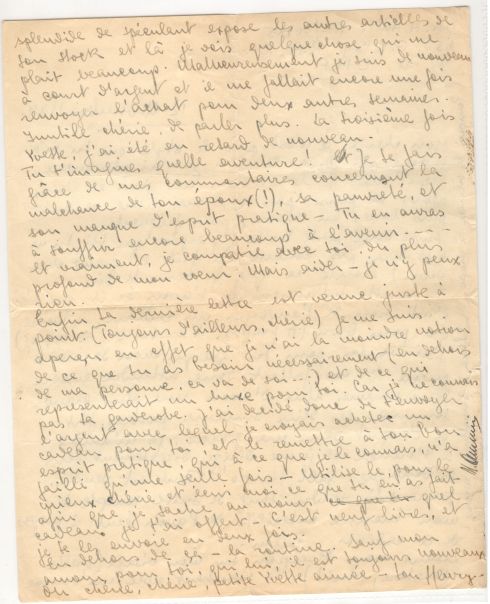 splendide de spéculant expose les autres articles de
son stock et là je vois quelque chose qui me
plait beaucoup. Malheureusement je suis de nouveau
à court d'argent et il me fallait encore une fois
renvoyer l'achat pour deux autres semaines.
Inutile chérie, de parler plus. La troisième fois
Yvette, j'ai été en retard de nouveau.
Tu t'imagines quelle aventure! Je te fais
grâce de mes commentaires concernant la
malchance de ton époux(!), sa pauvreté, et
son manque d'esprit pratique – Tu en auras
à souffrir encore beaucoup à l'avenir. - - - -
et vraiment, je compatie avec toi du plus
profond de mon coeur. Mais aider – je n'y peux
rien.
Enfin ta dernière lettre est venue juste à
point. (Toujours d'ailleurs, chérie) Je me suis
aperçu en effet que je n'ai la moindre notion
de ce que tu as besoin nécessairement (en dehors
de ma personne, ça va de soi...) et de ce qui
representerait un luxe pour toi. Car je ne connais
pas ta garderobe. J'ai decidé donc de t'envoyer
l'argent avec lequel je croyais acheter un
cadeau pour toi, et le remettre à ton bon
esprit pratique, qui, à ce que je le connais, n'a
failli qu'une seule fois – Utilise le, pour le
mieux chérie et écris moi ce que tu en as fait
afin que je sache, au moins quel
cadeau je t'ai offert – C'est neuf livres, et
je te les envoie en deux fois.
En dehors de ça – la routine. Sauf mon
amour pour toi, qui lui, il est toujours nouveau
Oh chérie, chérie, petite Yvette aimée – ton Henry.